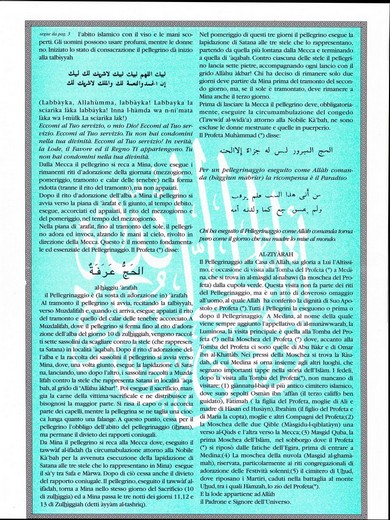 segue da pag. 3 l'abito islamico con il viso e le mani sco-
perti. Gli uomini possono usare profumi, mentre le donne
no. Iniziato lo stato di consacrazione il pellegrino dà inizio
alla talbiyyah
لبيك اللهم لبيك لبيك لاشريك لك لبيك
إن الحمد والنعمة لك والملك لاشريك لك
(Labbàyka, Allahùmma, labbàyka! Labbàyka la
sciarìka làka labbàyka! Inna l-hàmda wa n-ni'mata
làka wa l-mùlk La sciarìka lak!)
Eccomi al Tuo servizio, o mio Dio! Eccomi al Tuo ser-
vizio. Eccomi al Tuo servizio. Tu non hai condomini
nella tua divinità. Eccomi al Tuo servizio! In verità,
la Lode, il favore ed il Regno Ti appartengono. Tu
non hai condomini nella tua divinità.
Dalla Mecca il pellegrino si reca a Mina, dove esegue i
rimanenti riti d'adorazione della giornata (mezzogiorno,
pomeriggio, tramonto e calar delle tenebre) nella forma
ridotta (tranne il rito del tramonto), ma non appaiati.
Dopo il rito d'adorazione dell'alba a Mina il pellegrino si
avvia verso la piana di 'arafah in giunto, al tempo debito,
esegue, accorciati ed appaiati, il rito del mezzogiorno e
del pomeriggio, nel tempo del mezzogiorno.
Nella piana di 'arafah, fino al tramonto del sole, il pellegri-
no adora ed invoca, alzando le mani al cielo, rivolto in
direzione della Mecca. Questo è il momento fondamenta-
le ed essenziale del Pellegrinaggio. Il Profeta (*) disse:
الحج عرفة
al-hàggiu 'àrafah
il Pellegrinaggio è (la sosta di adorazione in) 'arafah
Al tramonto il pellegrino si avvia, recitando la talbiyyah,
verso Muzdalifah e, quando ci arriva, esegue appaiati il rito
del tramonto e quello del calar delle tenebre accorciato. A
Muzdalifah, dove il pellegrino si ferma fino al rito d'adora-
zione dell'alba del giorno 10 di zulhiggiah, vengono raccol-
ti sette sassolini da scagliare contro la stele (che rappresen-
ta Satana) in località 'aqabah. Dopo il rito d'adorazione del-
l'alba e la raccolta dei sassolini il pellegrino si avvia verso
Mina, dove, una volta giunto, esegue la lapidazione di Sata-
na, lanciando, uno dopo l'altro, i sassolini raccolti a Muzda-
lifah contro la stele che rappresenta Satana in località 'aqa-
bah, al grido di "Allàhu àkbar!". Poi esegue il sacrificio, man-
gia la carne della vittima sacrificale e ne distribuisce ai
bisognosi la maggior parte. Si rasa il capo o si accorcia
parte dei capelli, mentre la pellegrina se ne taglia una cioc-
ca lunga quanto una falange. A questo punto, cessa per il
pellegrino l'obbligo dell'abito del pellegrinaggio (iḥram),
ma permane il divieto dei rapporti coniugali.
Da Mina il pellegrino si reca alla Mecca dove, esegue il
tawwaf al-ifadah (la circumambulazione attorno alla Nobile
Ka'bah per la avvenuta esecuzione della lapidazione di
Satana alle tre stele che lo rappresentano in Mina) esegue
il sa'y tra Safa e Màrwa. Dopo di ciò cessa anche il divieto
dei rapporti coniugali. Il pellegrino, eseguito il tawwaf al-
ifadah, torna a Mina nello stesso giorno del Sacrificio (10
di zulhiggià) ed a Mina passa le tre notti dei giorni 11,12 e
13 di Zulhiggiah (detti ayyàm al-tashriq).
Nel pomeriggio di questi tre giorni il pellegrino esegue la
lapidazione di Satana alle tre stele che lo rappresentano,
partendo da quella più lontana dalla Mecca e terminando
a quella di 'aqabah. Contro ciascuna delle stele il pellegri-
no lancia sette pietre, accompagnando ogni lancio con il
grido Allàhu àkbar! Chi ha deciso di rimanere solo due
giorni deve partire da Mina prima del tramonto del secon-
do giorno, ma, se il sole è tramontato, deve rimanere a
Mina il terzo giorno.
Prima di lasciare la Mecca il pellegrino deve, obbligatoria-
mente, eseguire la circumambulazione del congedo
(Tawwaf al-wada') attorno alla Nobile Ka'bah, ne sono
escluse le donne mestruate e quelle in puerperio.
Il Profeta Muhàmmad (*) disse:
الحج المبرور ليس له جزاء إلا الجنة
Per un pellegrinaggio eseguito come Allah coman-
da (hàggiun mabrùr) la ricompensa è il Paradiso
من أتى هذا البيت فلم يرفث
ولم يفسق رجع كما ولدته أمه
Chi ha eseguito il Pellegrinaggio come Allàh comanda torna
puro come il giorno che sua madre lo mise al mondo.
AL-ZIYARAH
Il Pellegrinaggio alla Casa di Allàh, sia gloria a Lui l'Altissi-
mo, è occasione di visita alla Tomba del Profeta (*) a Medi-
na, che si trova in al-masgid al-nabawi (la moschea del Pro-
feta) dalla cupola verde. Questa visita non fa parte dei riti
del Pellegrinaggio, ma è un atto di doveroso omaggio
all'uomo, al quale Allàh ha conferito la dignità di Suo Apo-
stolo e Profeta (*). Tutti i Pellegrini la eseguono o prima o
dopo il Pellegrinaggio. A Medina, al nome della quale
viene sempre aggiunto l'appellativo di al-munàwwarah, la
Luminosa, la visita principale è quella alla Tomba del Pro-
feta (*) nella Moschea del Profeta (*) dove, accanto alla
Tomba del Profeta ci sono quelle di Abu Bàkr e di Omar
ibn al-Khattàb. Nei pressi della Moschea si trova la Ràu-
dah, di cui Medina si orna insieme agli altri luoghi, che
segnano importanti tappe nella storia dell'Islàm. I fedeli,
dopo la visita alla Tomba del Profeta(*), non mancano di
visitare: (1) giànnatu l-baqi il più antico cimitero islamico,
dove sono sepolti Osmàn ibn 'affàn (il terzo califfo ben
guidato), Fatimah ( la figlia del Profeta, moglie di Alì e
madre di Hàsan ed Husàin), Ibrahìm (il figlio del Profeta e
di Maria la copta), moglie e altri Compagni del Profeta;(2)
la Moschea delle due Qible (Màsgidu-l-qiblatàyn) una
verso al-Quds e l'altra verso la Mecca; (3) Masgid Quba, la
prima Moschea dell'Islàm, nel sobborgo dove il Profeta
(*) si riposò dalle fatiche dell'Egira, prima di entrare a
Medina;(4) la Moschea della nuvola (Masgid al-ghamà-
mah), riservata, particolarmente ai riti congregazionali di
adorazione delle Festività solenni;(5) il cimitero di Uhud,
dove riposano i Martiri, caduti nella battaglia al monte
Uhud, tra i quali Hàmzah, lo zio del Profeta(*).
E la lode appartiene ad Allàh
il Padrone e Signore dell'Universo.